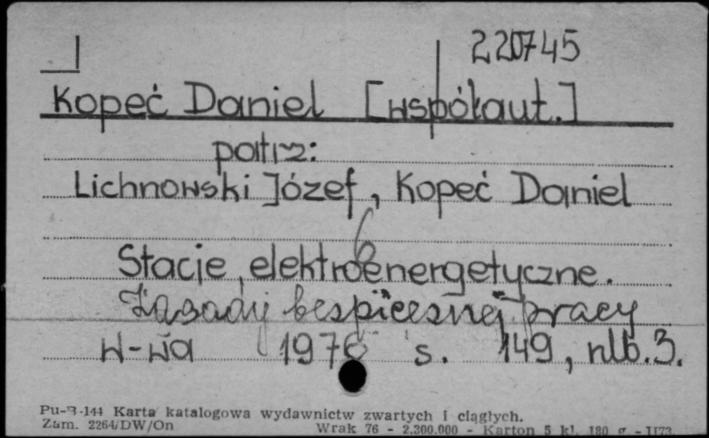 I
220745
Kopeć Daniel [współaut.]
patrz:
Lichnowski Józef, Kopeć Daniel
Stacje elektroenergetyczne.
Zasady bezpiecznej pracy
W-wa 1976 s. 149, nlb. 3.
Pu-3-144 Karta katalogowa wydawnictw zwartych i ciągłych.
Zam. 2264/DW/On Wrak 76 - 2.300.000 - Karton 5 kl. 180 g -